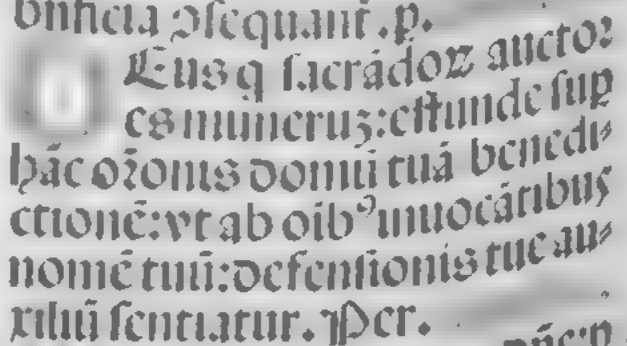 bn̄ficia ꝯsequant᷑.p̱.
Eus q sacrādoꝝ auctoꝛ
es muneruꝫ:effunde suꝑ
hāc oꝛōnis domū tuā benedi⸗
ctionē:vt ab oībꝰ inuocātibus
nomē tuū:defensionis tue au⸗
xiliū sentiatur. Per.